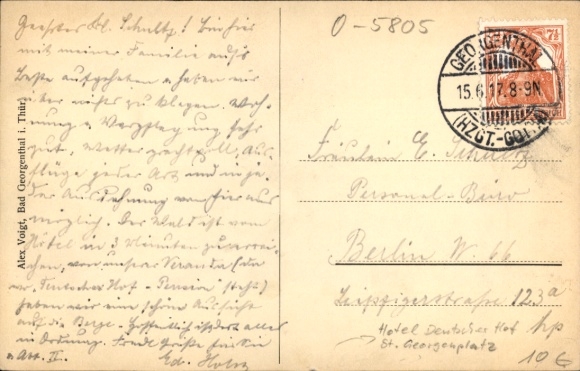 Geehrtes Frl. Schultz! Bin hier
mit meiner Familie aufs
Beste aufgehoben u. haben wir
über nichts zu klagen. Woh-
nung u. Verpflegung sehr
gut, Wetter prachtvoll, Aus-
flüge jeder Art und in je-
der Ausdehnung von hier aus
möglich. Der Wald ist vom
Hôtel in 3 Minuten zu errei-
chen, von unserer Veranda
"Deutscher Hof - Pension"
haben wir eine schöne Aussicht
auf die Berge. Hoffentlich ist dort alles
in Ordnung. Freundl. Grüße für Sie
u. Abt. II. Ed.
Alex Voigt, Bad Georgenthal i. Thür.
0-5805
GEORGENTHAL
15.6.17. 8-9N
(HZGT.-GOTHA)
7½
Fräulein E. Schultz
Personal-Büro
Berlin W. 66
Leipzigerstrasse 123a
Hotel Deutscher Hof hp
St. Georgenplatz
10€